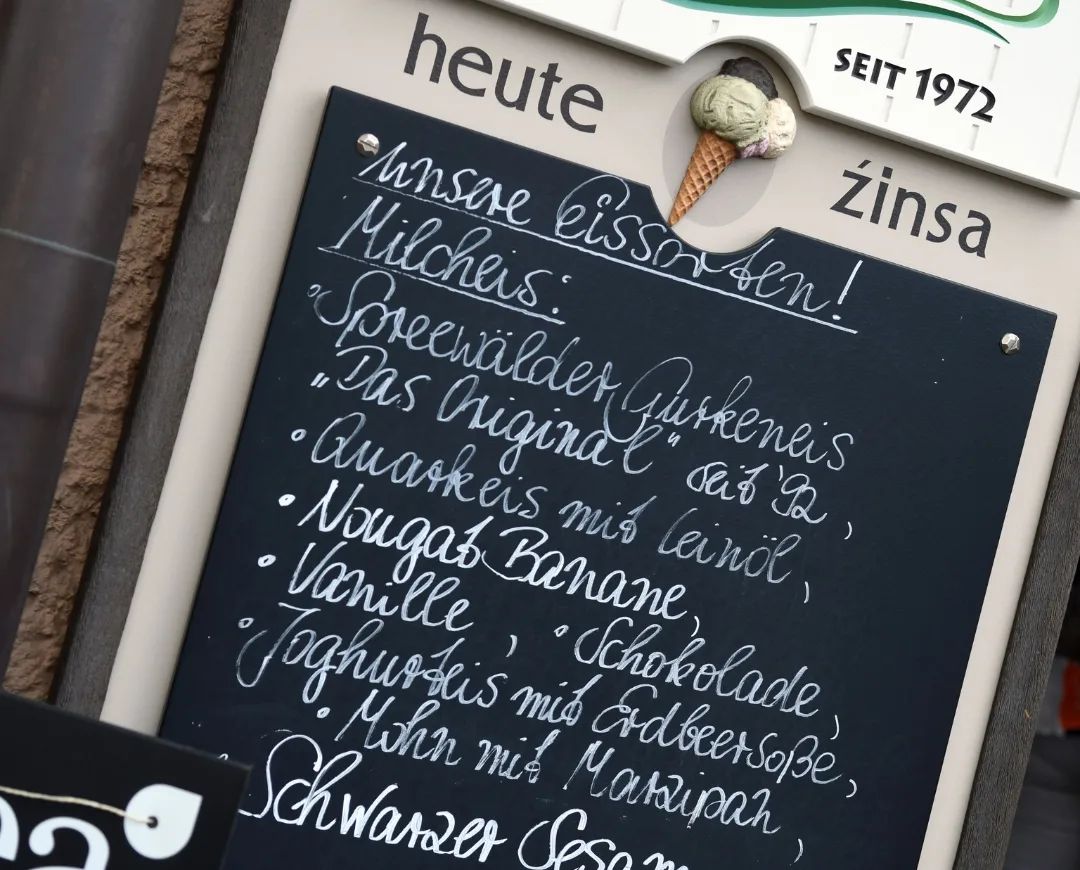 SEIT 1972
heute
źinsa
unsere Eissorten!
Milcheis:
° Spreewälder Gurkeneis
"Das Original" seit '92,
° Quarkeis mit Leinöl,
° Nougat Banane,
° Vanille, ° Schokolade,
° Joghurteis mit Erdbeersoße,
° Mohn mit Marzipan,
Schwarzer Sesam